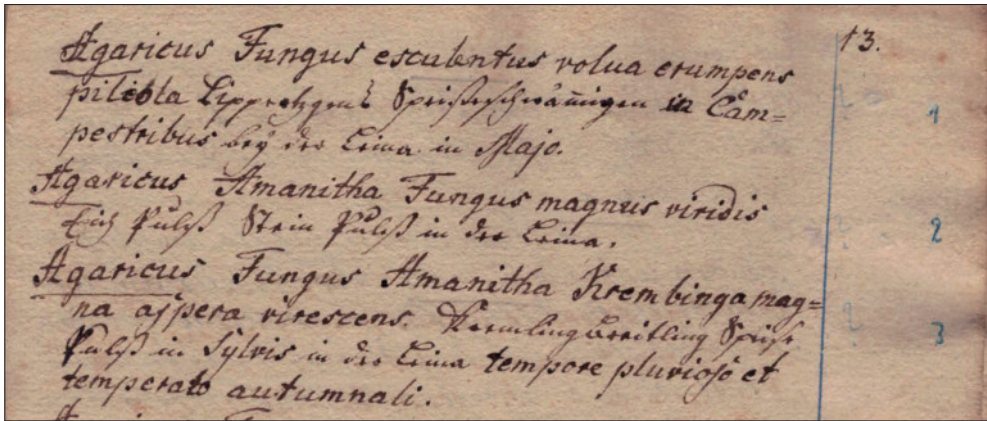 13.
Agaricus Fungus esculentus volua erumpens
pileola Speiseschwämmgen in Cam=
pestribus bey der Leina in Majo.
1
Agaricus Amanitha Fungus magnus viridis
Eich Pulß Stein Pulß in der Leina.
2
Agaricus Fungus Amanitha Krembinga mag=
na aspera virescens. Kremling breitling Speise
Pulß in Sylvis in der Leina tempore pluvioso et
temperato autumnali.
3